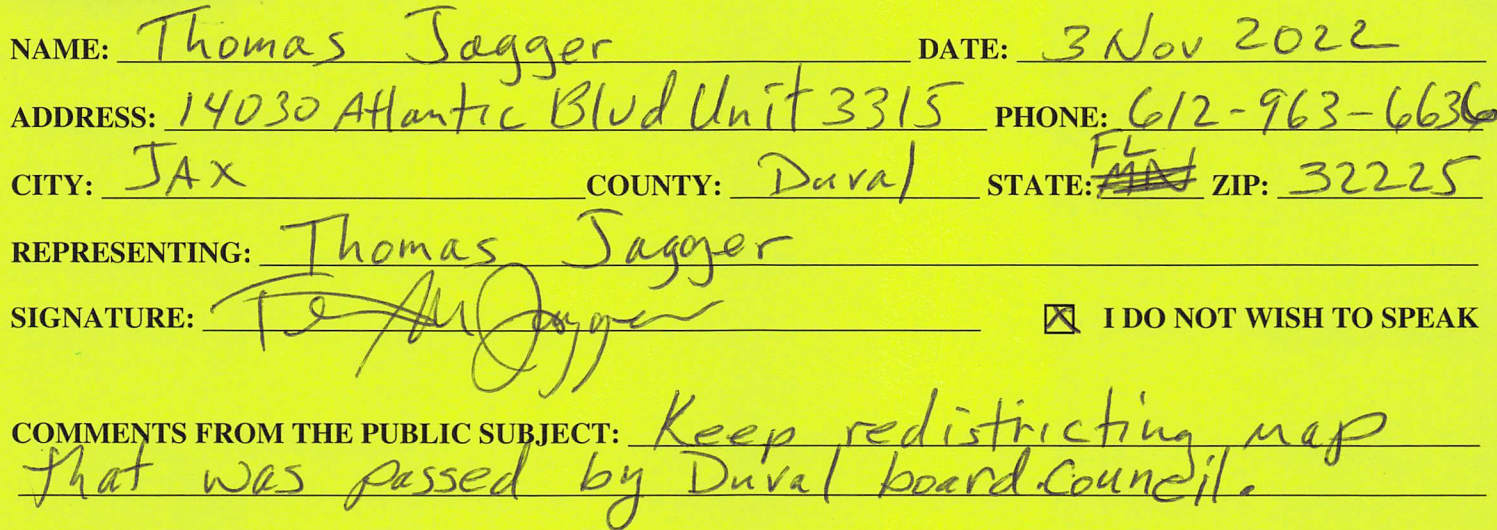 NAME: Thomas Jagger DATE: 3 Nov 2022
ADDRESS: 14030 Atlantic Blvd Unit 3315 PHONE: 612-963-6636
CITY: JAX COUNTY: Duval STATE: MN FL ZIP: 32225
REPRESENTING: Thomas Jagger
SIGNATURE: T M Jagger ☒ I DO NOT WISH TO SPEAK
COMMENTS FROM THE PUBLIC SUBJECT: Keep redistricting map
that was passed by Duval board council.